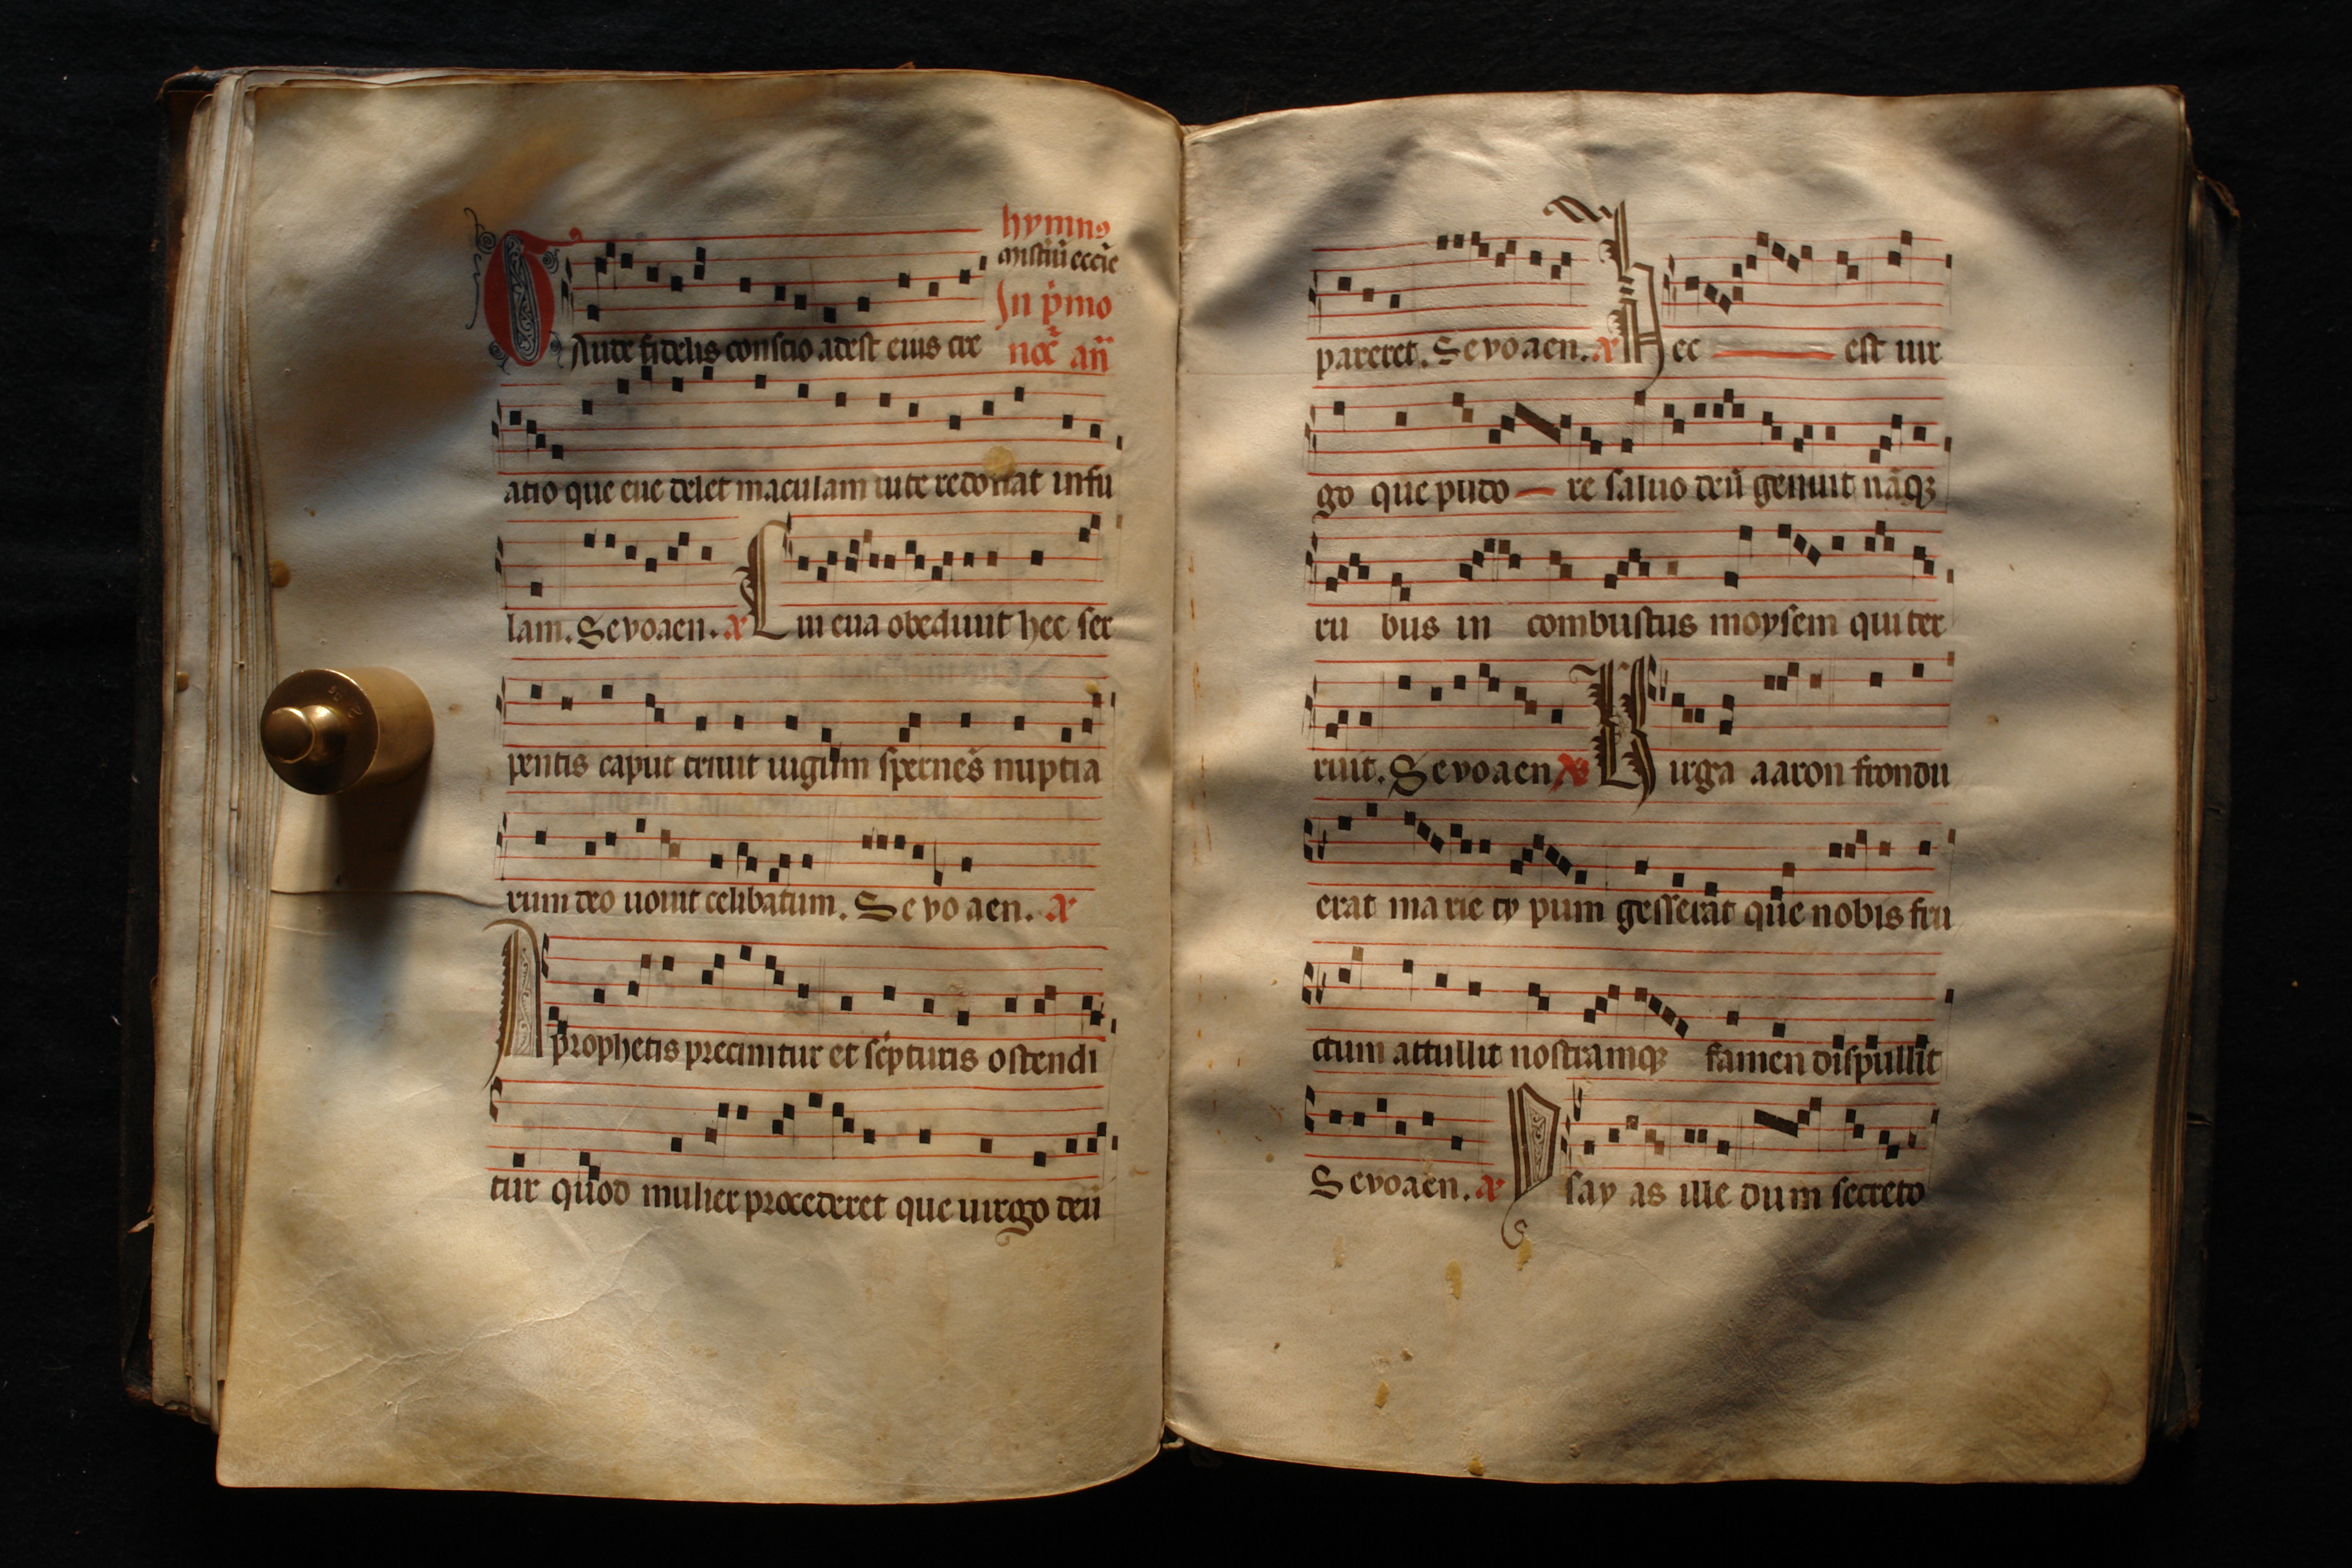 hymn⁹
mistiũ eccĩe
In p̃mo
noc̃ añ
Gaude fidelis conscio adest eius cre
atio que eue delet maculam tute redonat infu
lam. Sevoaen. Cui eua obediuit hec ser
pentis caput triuit uigĩm spernẽs nuptia
rum deo uouit celibatum. Sevoaen.
A prophetis precinitur et sc̃pturis ostendi
tur quod mulier procederet que uirgo deũ
pareret. Sevoaen. Hec est uir
go que pudo re saluo deũ genuit nãqꝫ
ru bus in combustus moysem qui ter
ruit. Sevoaen Uirga aaron frondu
erat marie ty pum gesserat que nobis fru
ctum attullit nostramqꝫ famen dispullit
Sevoaen. Ysay as ille dum secreto